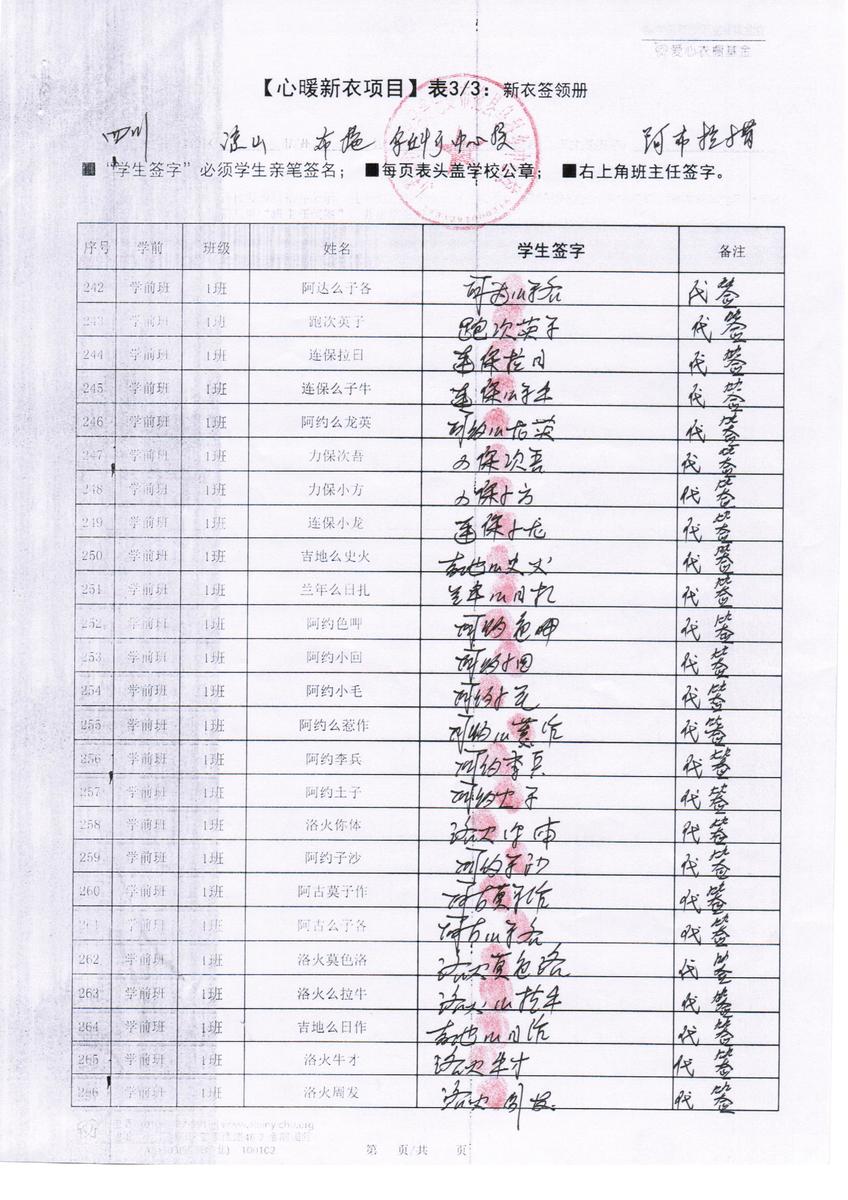 爱心衣橱基金
【心暖新衣项目】表3/3：新衣签领册
四川 凉山 布拖 中心校 阿布拉措
■“学生签字”必须学生亲笔签名； ■每页表头盖学校公章； ■右上角班主任签字。
序号 学前 班级 姓名 学生签字 备注
242 学前班 1班 阿达么子各 阿为么子各 代签
243 学前班 1班 跑次英子 跑次英子 代签
244 学前班 1班 连保拉日 连保拉日 代签
245 学前班 1班 连保么子牛 连保么子牛 代签
246 学前班 1班 阿约么龙英 阿约么龙英 代签
247 学前班 1班 力保次吾 力保次吾 代签
248 学前班 1班 力保小方 力保小方 代签
249 学前班 1班 连保小龙 连保小龙 代签
250 学前班 1班 吉地么史火 吉地么史火 代签
251 学前班 1班 兰年么日扎 兰年么日扎 代签
252 学前班 1班 阿约色呷 阿约色呷 代签
253 学前班 1班 阿约小回 阿约小回 代签
254 学前班 1班 阿约小毛 阿约小毛 代签
255 学前班 1班 阿约么惹作 阿约么惹作 代签
256 学前班 1班 阿约李兵 阿约李兵 代签
257 学前班 1班 阿约土子 阿约土子 代签
258 学前班 1班 洛火你体 洛火 代签
259 学前班 1班 阿约子沙 阿约子沙 代签
260 学前班 1班 阿古莫子作 阿古莫子作 代签
261 学前班 1班 阿古么子各 阿古么子各 代签
262 学前班 1班 洛火莫色洛 洛火莫色洛 代签
263 学前班 1班 洛火么拉牛 洛火么拉牛 代签
264 学前班 1班 吉地么日作 吉地么日作 代签
265 学前班 1班 洛火牛才 洛火牛才 代签
266 学前班 1班 洛火周发 洛火周发 代签
100102
第 页/共 页